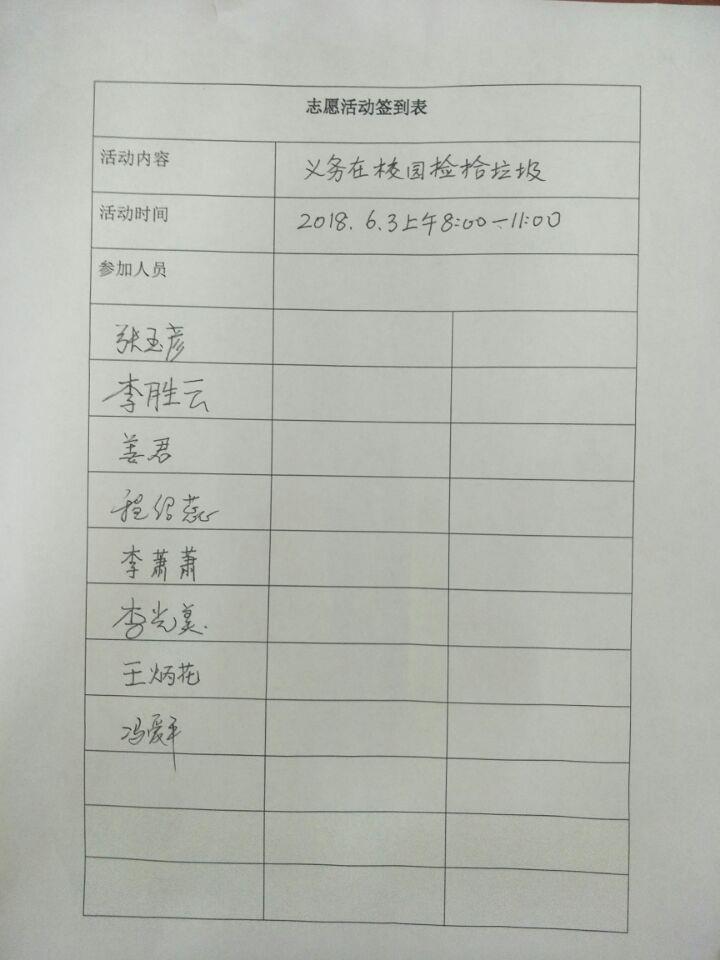 志愿活动签到表
活动内容 义务在校园捡拾垃圾
活动时间 2018.6.3上午8:00—11:00
参加人员
张玉彦
李胜云
姜君
程绍蕊
李萧萧
李光美
王炳花
冯爱平